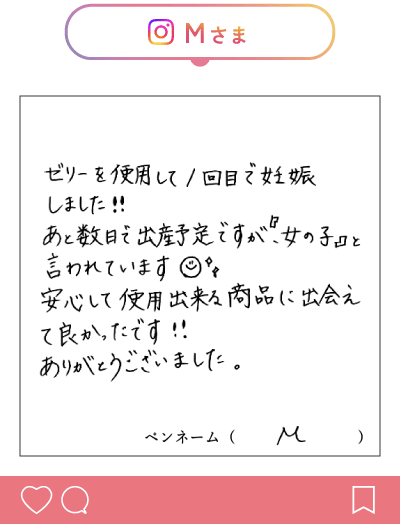 Mさま
ゼリーを使用して1回目で妊娠
しました!!
あと数日で出産予定ですが、『女の子』と
言われています
安心して使用出来る商品に出会え
て良かったです!!
ありがとうございました。
ペンネーム( M )